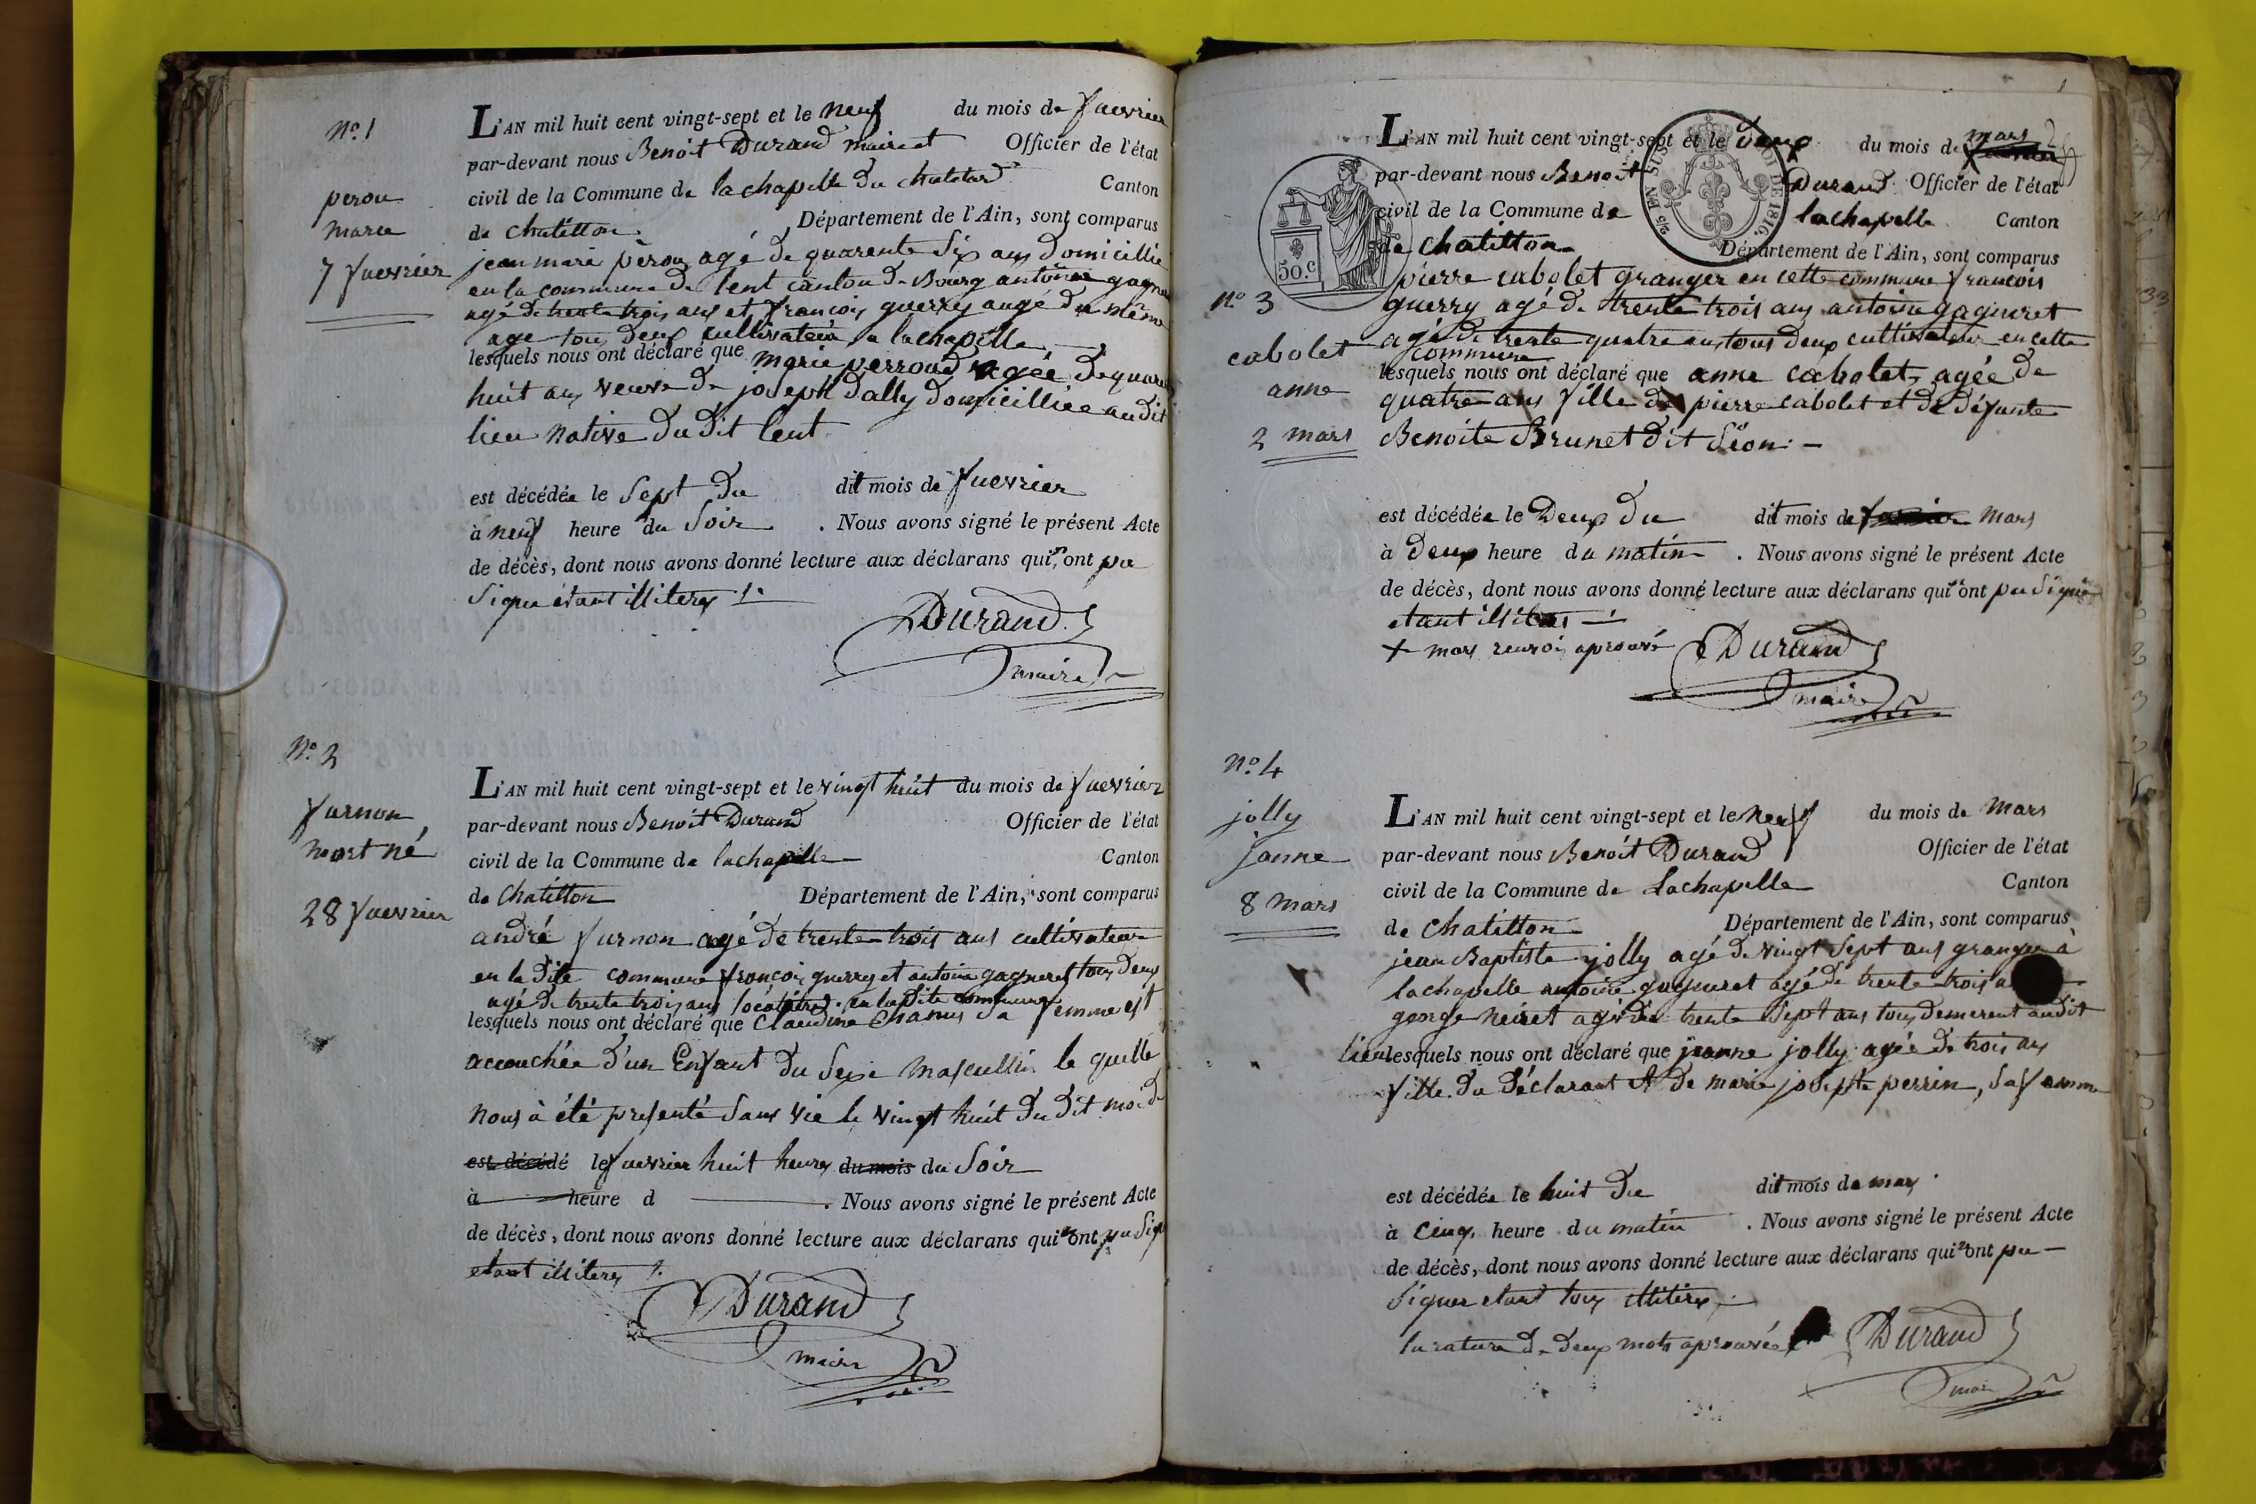 N.o 1
perou
marie
7 fuevrier
L'AN mil huit cent vingt-sept et le neuf du mois de fuevrier
par-devant nous Benoit Durand maire et Officier de l'état
civil de la Commune de lachapelle du chatelard Canton
de chatillon Département de l'Ain, sont comparus
jean marie pèrou agé de quarente six ans domicillié
en la commune de lent canton de Bourg antoine
agé de trente trois ans et françois guerry augé du même
age tous deux cultivateur a lachapelle
lesquels nous ont déclaré que marie perroud agéé de
huit ans veuve de joseph dally domicilliée audit
lieu native du dit lent
est décédée le sept du dit mois de fuevrier
à neuf heure du soir . Nous avons signé le présent Acte
de décès, dont nous avons donné lecture aux déclarans qui n'ont pu
signer étant illiterés
Durand
maire
N.o 2
furnon
mort né
28 fuevrier
L'AN mil huit cent vingt-sept et le vingt huit du mois de fuevrier
par-devant nous Benoit Durand Officier de l'état
civil de la Commune de lachapelle Canton
de Chatillon Département de l'Ain, sont comparus
andré furnon agé de trente trois ans cultivateur
en la dite commune françois guerry et antoine gagneret tous deux
agé de trente trois ans en la dite commune
lesquels nous ont déclaré que Claudine Chanus sa femme est
accouchée d'un Enfant du sexe mascullin le quelle
nous à été presenté sans vie le vingt huit du dit mois de
est décédé le fuevrier huit heures du mois du soir
à heure d . Nous avons signé le présent Acte
de décès, dont nous avons donné lecture aux déclarans qui n'ont pu
etant illiterés
Durand
maire
L'AN mil huit cent vingt-sept et le deux du mois de mars
par-devant nous Benoit Durand Officier de l'état
civil de la Commune de lachapelle Canton
de chatillon Département de l'Ain, sont comparus
50.c
LOI DE 1816.
N.o 3
cabolet
anne
2 mars
pierre cabolet granger en cette commune francois
guerry agé de trente trois ans antoine gagneret
agé de trente quatre ans tous deux cultivateur en cette
commune
lesquels nous ont déclaré que anne cabolet agéé de
quatre ans fille de pierre cabolet et de défunte
Benoite Brunet dit Sion
est décédée le Deux du dit mois de mars
à deux heure du matin . Nous avons signé le présent Acte
de décès, dont nous avons donné lecture aux déclarans qui n'ont pu signer
etant illiterés
+ mars renvoi aprouvé
Durand
maire
N.o 4
jolly
janne
8 mars
L'AN mil huit cent vingt-sept et le neuf du mois de mars
par-devant nous Benoit Durand Officier de l'état
civil de la Commune de Lachapelle Canton
de chatillon Département de l'Ain, sont comparus
jean Baptiste jolly agé de vingt sept ans granger à
lachapelle antoine gagneret agé de trente trois
george neiret agé de trente sept ans tous demerent audit
lieu lesquels nous ont déclaré que jeanne jolly agéé de trois ans
fille du déclarant et de marie josepte perrin, sa femme
est décédée le huit du dit mois de mars
à cinq heure du matin . Nous avons signé le présent Acte
de décès, dont nous avons donné lecture aux déclarans qui n'ont pu
signer etant tous illiterés
la rature de deux mots aprouvée
Durand
maire